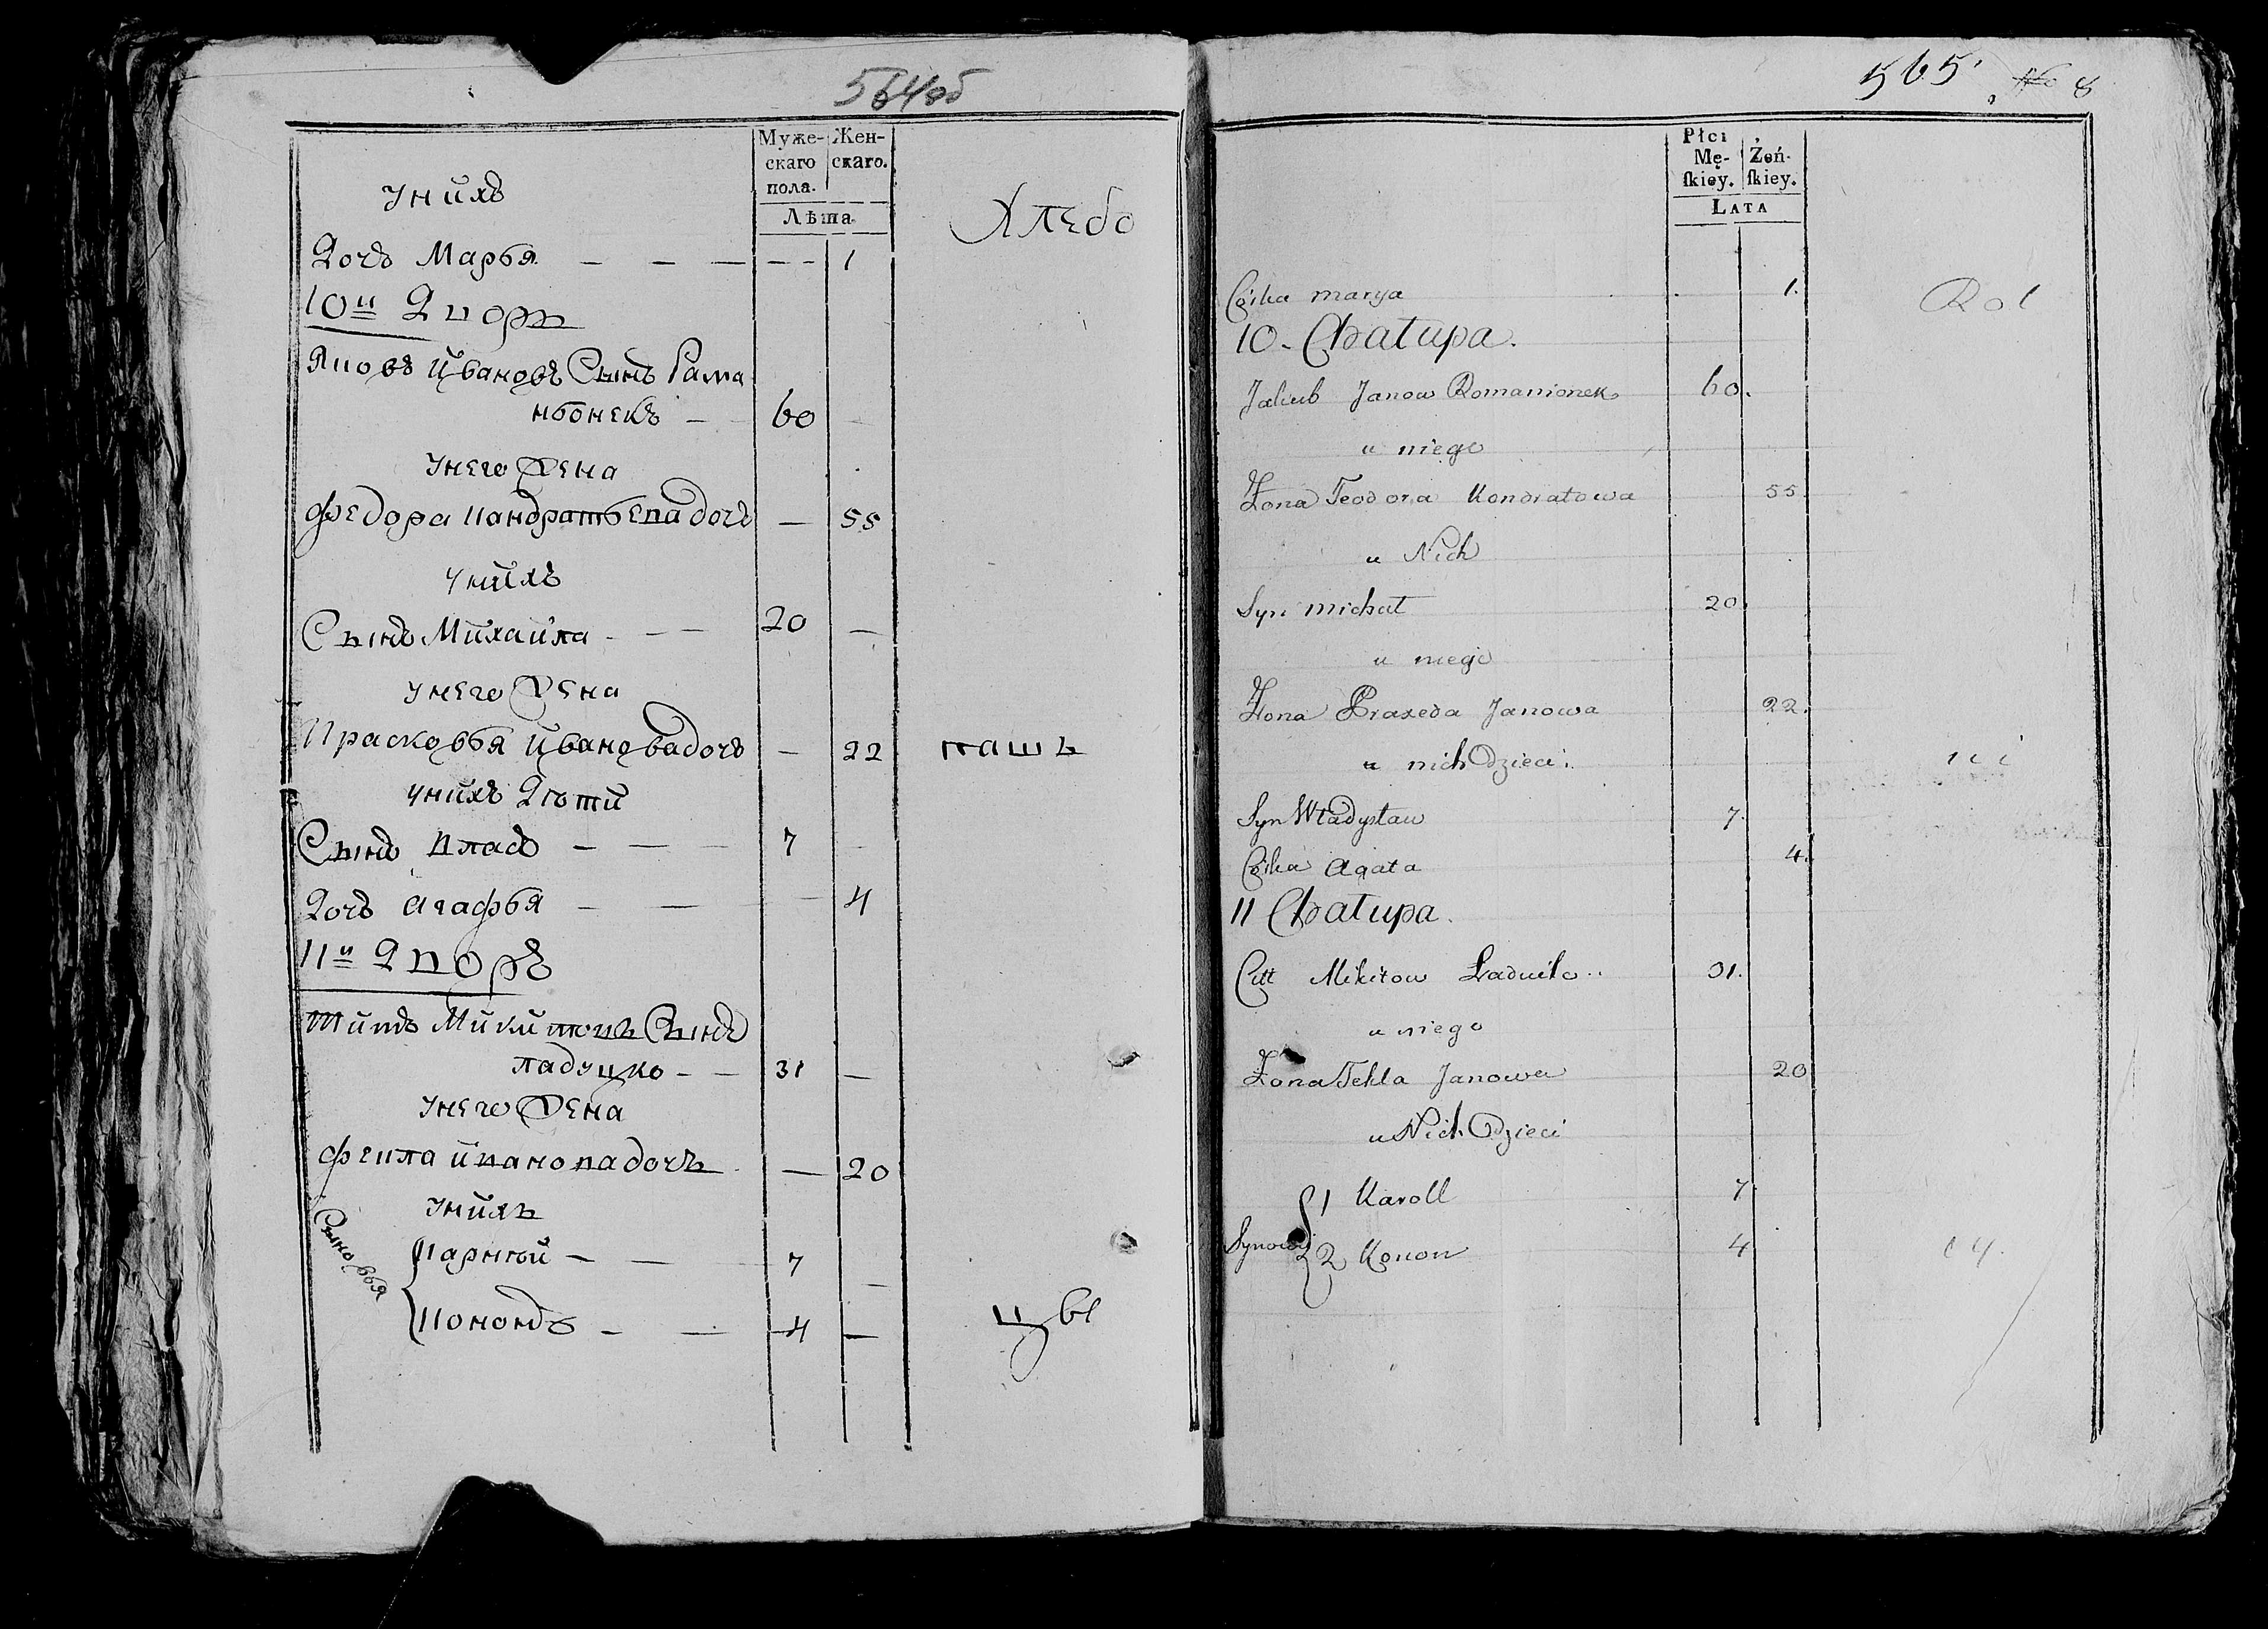 564об
Муже-
скаго
пола.
Жен-
скаго.
Лѣта
у нихъ
Хлебо
Дочь Марья — — — — 1
10й Дворъ
Яковъ Ивановъ Сынъ Рама
ньонекъ — 60 —
у него Жена
Федора Кондратьева дочь — 55
у нихъ
Сынъ Михайла — — 20 —
у него Жена
Прасковья Иванова дочь — 22
пашь
у нихъ Дѣти
Сынъ Власъ — — — 7 —
Дочь Агафья — — — 4
11й Дворъ
Титъ Микитовъ Сынъ
Ладуцко — — 31 —
у него Жена
Фекла Иванова дочь — 20
у нихъ
Сыновья
Карней — — 7 —
Кононъ — — 4 —
цы
565
8
Płci
Mę-
ſkiey.
Żeń-
ſkiey.
LATA
Córka marya 1.
Rol
10. Chałupa.
Jakub Janow Romanionek 60.
u niego
Żona Teodora Kondratowa 55.
u Nich
Syn michał 20.
u niego
Żona Praxeda Janowa 22.
u nich Dzieci.
nci
Syn Władysław 7.
Córka Agata 4.
11 Chałupa.
Citt Mikitow Ładućko 31.
u niego
Żona Tekla Janowa 20
u Nich Dzieci
Synowie
1 Karoll 7.
2 Konon 4
cy.